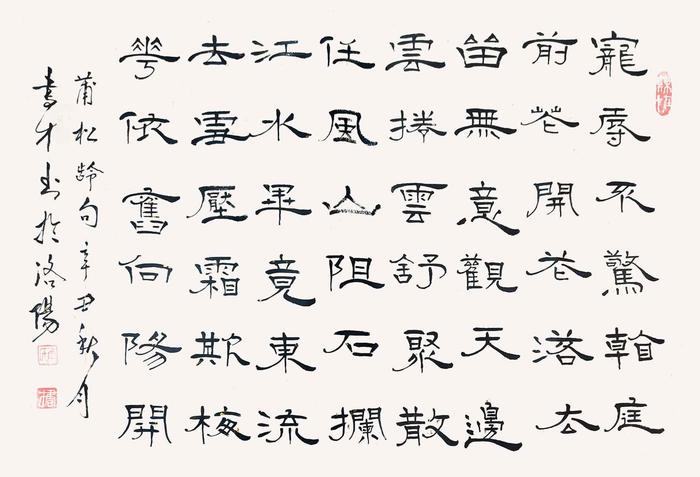 寵辱不驚看庭
前花開花落去
留無意觀天邊
雲捲雲舒聚散
任風山阻石攔
江水畢竟東流
去雪壓霜欺梅
花依舊向陽開
蒲松齡句辛丑秋月
書才書於洛陽